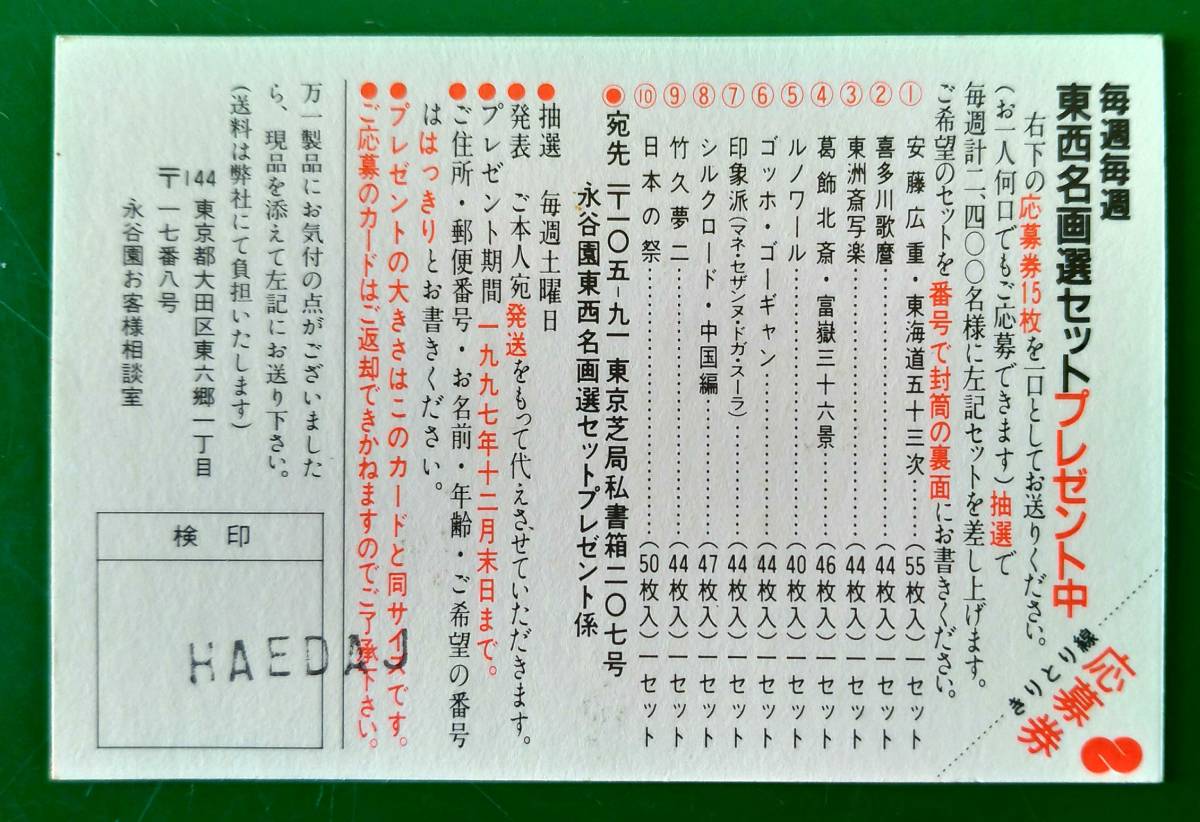 毎週毎週
東西名画選セットプレゼント中
右下の応募券15枚を一口としてお送りください。
(お一人何口でもご応募できます)抽選で
毎週計二、四〇〇名様に左記セットを差し上げます。
ご希望のセットを番号で封筒の裏面にお書きください。
① 安藤広重・東海道五十三次………(55枚入)一セット
② 喜多川歌麿………(44枚入)一セット
③ 東洲斎写楽………(44枚入)一セット
④ 葛飾北斎・富嶽三十六景………(46枚入)一セット
⑤ ルノワール………(40枚入)一セット
⑥ ゴッホ・ゴーギャン………(44枚入)一セット
⑦ 印象派(マネ・セザンヌ・ドガ・スーラ)………(44枚入)一セット
⑧ シルクロード・中国編………(47枚入)一セット
⑨ 竹久夢二………(44枚入)一セット
⑩ 日本の祭………(50枚入)一セット
●宛先 〒一〇五-九一 東京芝局私書箱二〇七号
永谷園東西名画選セットプレゼント係
●抽選 毎週土曜日
●発表 ご本人宛発送をもって代えさせていただきます。
●プレゼント期間 一九九七年十二月末日まで。
●ご住所・郵便番号・お名前・年齢・ご希望の番号
ははっきりとお書きください。
●プレゼントの大きさはこのカードと同サイズです。
●ご応募のカードはご返却できかねますのでご了承下さい。
万一製品にお気付の点がございました
ら、現品を添えて左記にお送り下さい。
(送料は弊社にて負担いたします)
〒144 東京都大田区東六郷一丁目
一七番八号
永谷園お客様相談室
検印
HAEDAJ
きりとり線
応募券
2